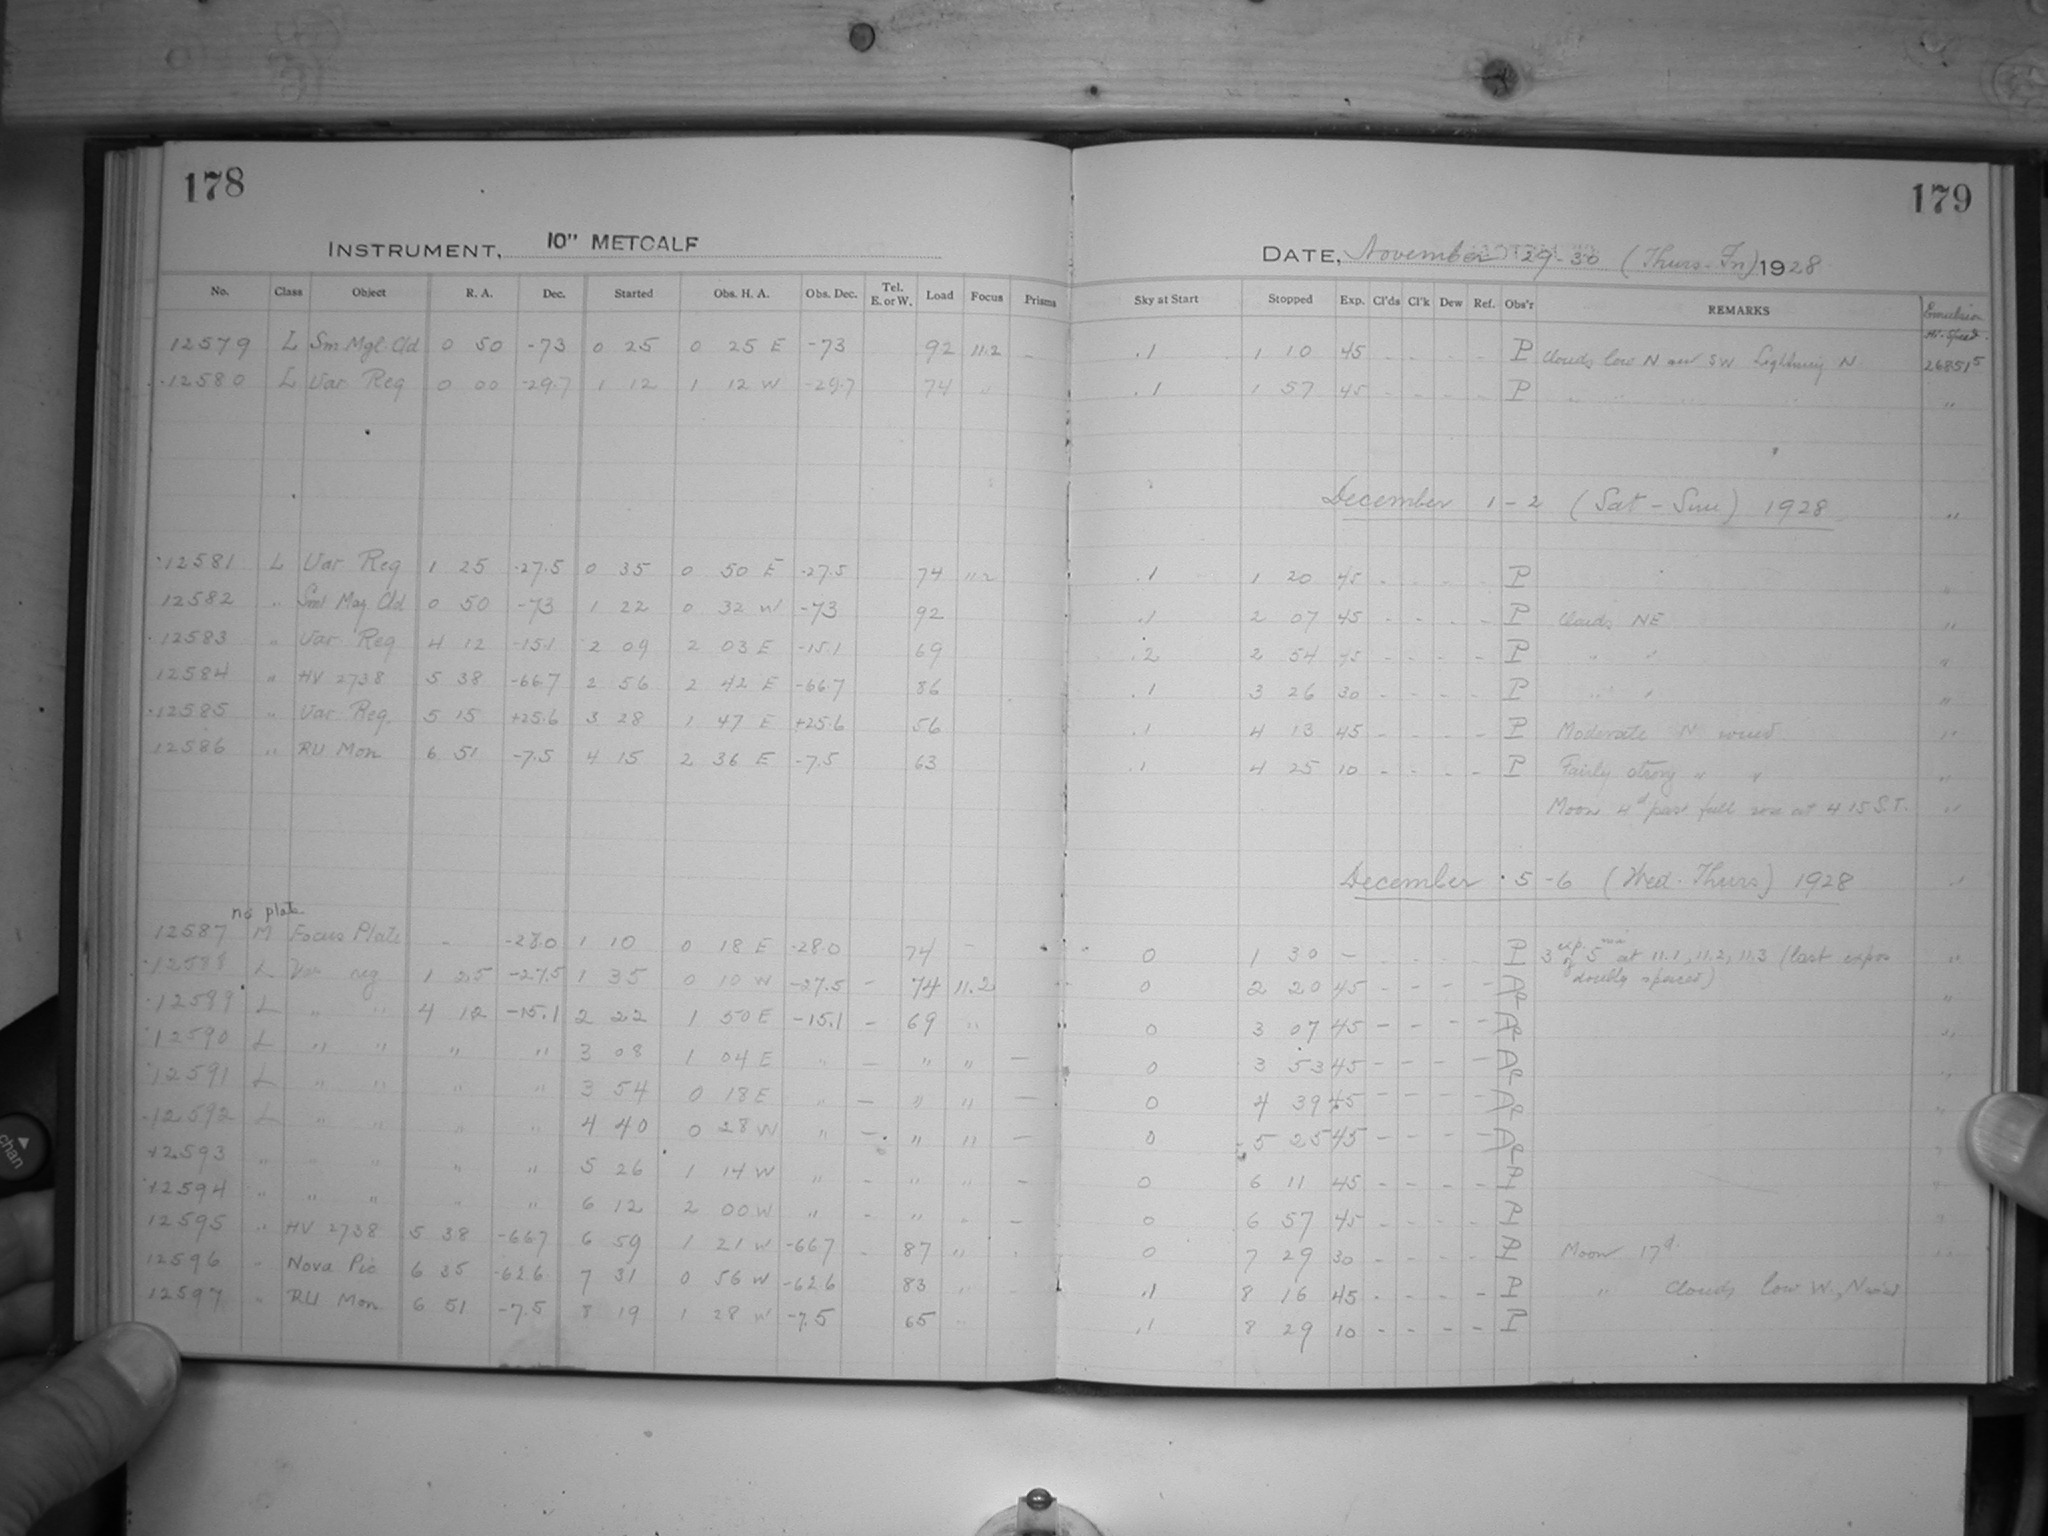 178
INSTRUMENT, 10" METCALF
No. Class Object R. A. Dec. Started Obs. H. A. Obs. Dec. Tel. E. or W. Load Focus Prisms
12579 L Sm. Mgl. Cld 0 50 -73 0 25 0 25 E -73 92 11.2 -
12580 L Var Reg 0 00 -29.7 1 12 1 12 W -29.7 74 "
12581 L Var Reg 1 25 -27.5 0 35 0 50 E -27.5 74 11.2
12582 " Sml Mag Cld 0 50 -73 1 22 0 32 W -73 92
12583 " Var Reg 4 12 -15.1 2 09 2 03 E -15.1 69
12584 " HV 2738 5 38 -66.7 2 56 2 42 E -66.7 86
12585 " Var Reg. 5 15 +25.6 3 28 1 47 E +25.6 56
12586 " RU Mon 6 51 -7.5 4 15 2 36 E -7.5 63
no plate
12587 M Focus Plate - -28.0 1 10 0 18 E -28.0 74 -
12588 L Var reg 1 25 -27.5 1 35 0 10 W -27.5 - 74 11.2 -
12589 L " " 4 12 -15.1 2 22 1 50 E -15.1 - 69 "
12590 L " " " " 3 08 1 04 E " - " " -
12591 L " " " " 3 54 0 18 E " - " " -
12592 L " " " " 4 40 0 28 W " - " " -
12593 " " " " " 5 26 1 14 W " - " " -
12594 " " " " " 6 12 2 00 W " - " " -
12595 " HV 2738 5 38 -66.7 6 59 1 21 W -66.7 - 87 " -
12596 " Nova Pic 6 35 -62.6 7 31 0 56 W -62.6 83 " -
12597 " RU Mon 6 51 -7.5 8 19 1 28 W -7.5 65 "
179
DATE, November 29-30 (Thurs-Fri) 1928
Sky at Start Stopped Exp. Cl'ds Cl'k Dew Ref. Obs'r REMARKS Emulsion
Hi-Speed
.1 1 10 45 - - - - P Clouds low N and SW Lightning N 26851⁵
.1 1 57 45 - - - - P " " " " "
December 1-2 (Sat-Sun) 1928 "
.1 1 20 45 - - - - P "
.1 2 07 45 - - - - P Clouds NE "
.2 2 54 45 - - - - P " " "
.1 3 26 30 - - - - P " " "
.1 4 13 45 - - - - P Moderate N wind "
.1 4 25 10 - - - - P Fairly strong " " "
Moon 4d past full rose at 4 15 S.T. "
December 5-6 (Wed-Thurs) 1928 "
0 1 30 - - - - - P 3 exp. of 5 min at 11.1, 11.2, 11.3 (last expos "
doubly spaced)
0 2 20 45 - - - - AP "
0 3 07 45 - - - - AP "
0 3 53 45 - - - - AP "
0 4 39 45 - - - - AP "
0 5 25 45 - - - - AP "
0 6 11 45 - - - - P "
0 6 57 45 - - - - P "
0 7 29 30 - - - - P Moon 17d. "
.1 8 16 45 - - - - P " Clouds low W, N wind
.1 8 29 10 - - - - P
chan